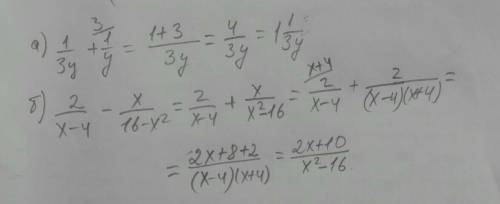 а) 1/3y + 3/ 1/y = 1+3/3y = 4/3y = 1 1/3y
б) 2/x-4 - x/16-x² = 2/x-4 + x/x²-16 = x+4/ 2/x-4 + 2/(x-4)(x+4) =
= 2x+8+2/(x-4)(x+4) = 2x+10/x²-16